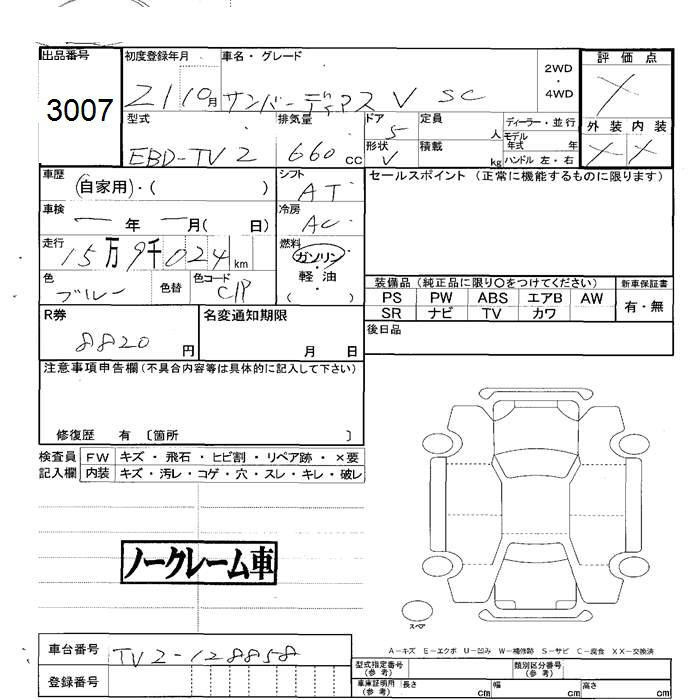 出品番号 初度登録年月 車名・グレード 2WD 4WD 評価点
3007 21 10月 サンバーディアス V SC
外装 内装
型式 排気量 ドア 定員 人 ディーラー・並行
EBD-TV2 660 CC 5 モデル 年式 年
形状 V 積載 kg ハンドル 左・右
車歴 (自家用)・( ) シフト AT セールスポイント (正常に機能するものに限ります)
車検 ー年 ー月( 日) 冷房 AC
走行 15万9千024km 燃料 ガソリン・軽油 ( )
色 ブルー 色替 色コード C/P
装備品 (純正品に限り〇をつけてください) 新車保証書
PS PW ABS エアB AW 有・無
SR ナビ TV カワ
R券 8820 円 名変通知期限 月 日 後日品
注意事項申告欄(不具合内容等は具体的に記入して下さい)
修復歴 有 〔箇所 〕
検査員 FW キズ・飛石・ヒビ割・リペア跡・×要
記入欄 内装 キズ・汚レ・コゲ・穴・スレ・キレ・破レ
ノークレーム車
スペア
A-キズ E-エクボ U-凹み W-補修跡 S-サビ C-腐食 XX-交換済
車台番号 TV2-128858 型式指定番号(参考) 類別区分番号(参考)
登録番号 車庫証明用(参考) 長さ cm 幅 cm 高さ cm